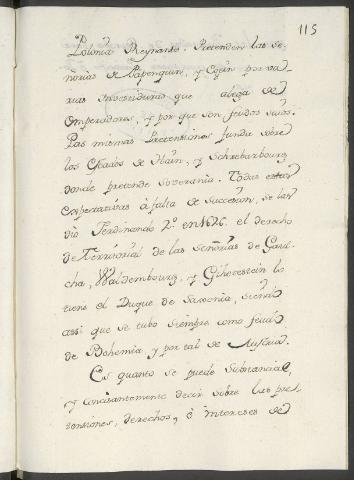 115
Polonia Reynante. Pretenden las Se-
ñorias de Papenguin, y Coqûn por va-
rias Investiduras que alega de
Emperadores, y por que son feudos suios.
Las mismas Pretensiones funda sobre
los Ctados de Stain, y
donde pretende Soverania. Todas estas
Espectativas à falta de Succession, se las
diò Ferdinando 2º. en 1626. el derecho
de Territorial de las Señorias de Gaul-
cha, Waldembourg, y lo
tiene el Duque de Saxonia, siendo
assi que se tubo siempre como feudo
de Bohemia, y por tal de Austria.
Es quanto se puede Substancial,
y concisantemente decir sobre las pre-
tensiones, derechos, ò intereses de